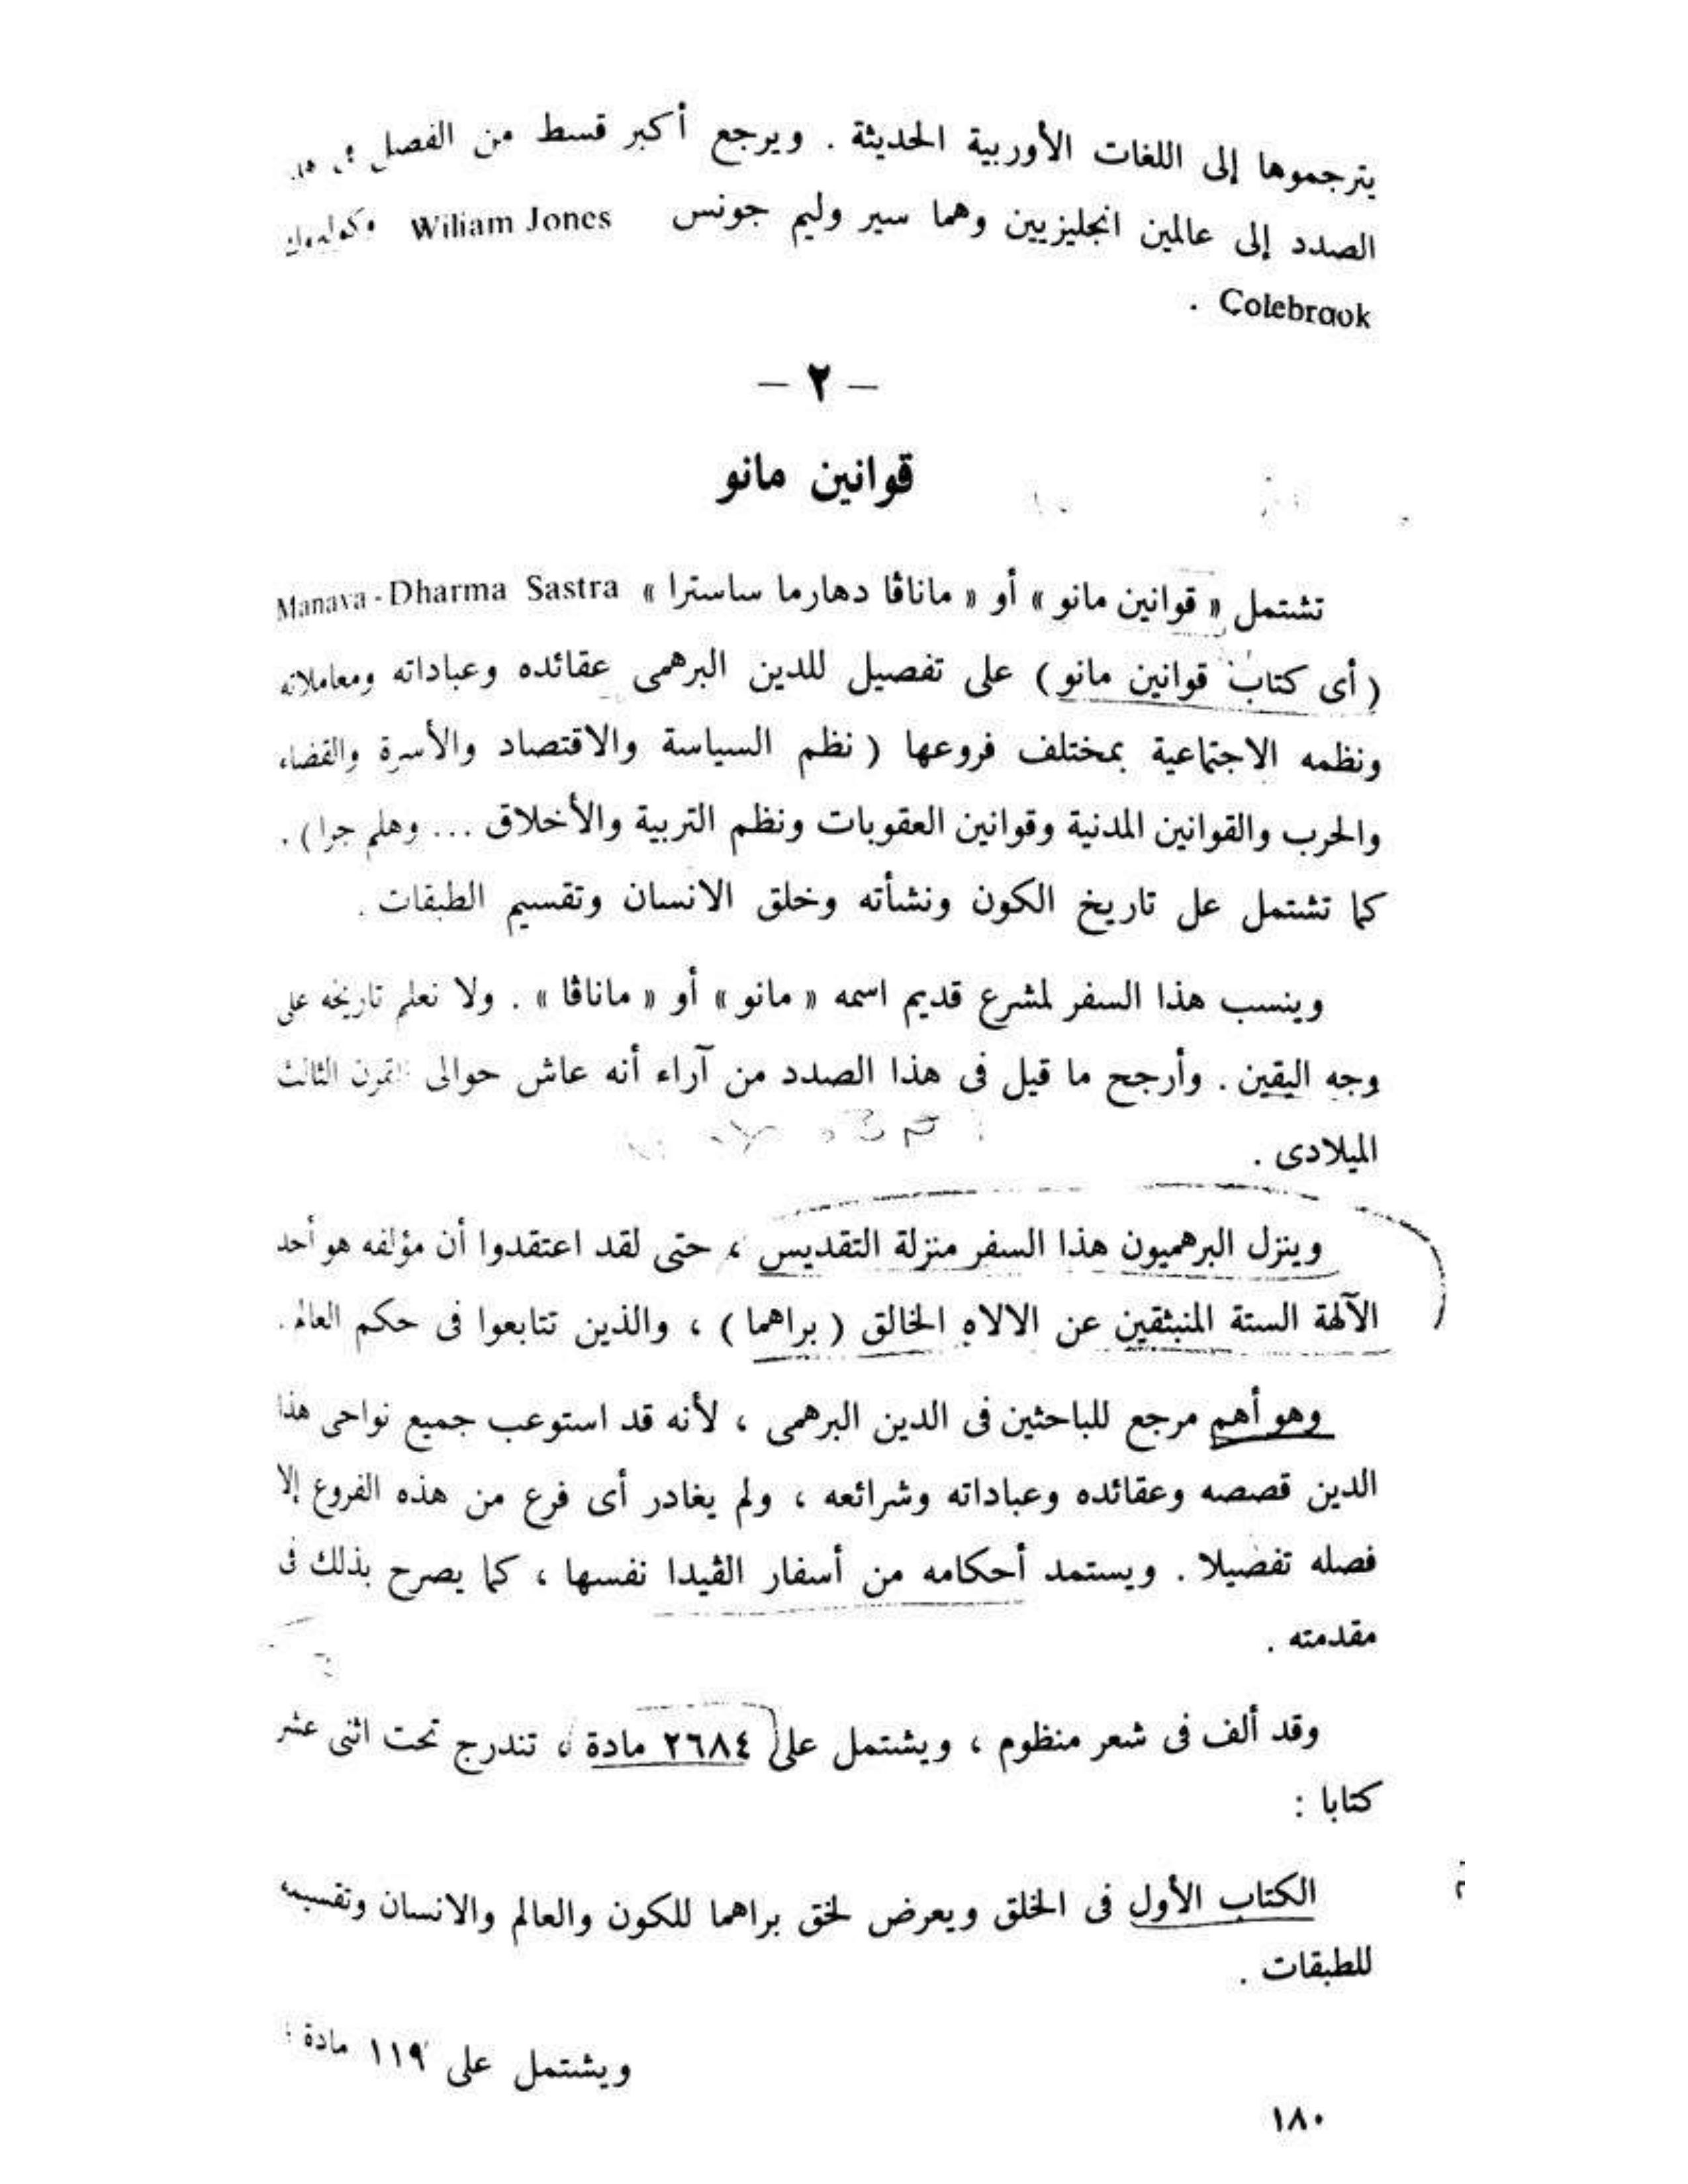 يترجموها إلى اللغات الأوربية الحديثة . ويرجع أكبر قسط من الفصل فى هذا
الصدد إلى عالمين انجليزيين وهما سير وليم جونس Wiliam Jones وكولبروك
Colebraok .
— ٢ —
قوانين مانو
تشتمل « قوانين مانو » أو « ماناڤا دهارما ساسترا » Manava - Dharma Sastra
( أى كتاب قوانين مانو ) على تفصيل للدين البرهمى عقائده وعباداته ومعاملاته
ونظمه الاجتماعية بمختلف فروعها ( نظم السياسة والاقتصاد والأسرة والقضاء
والحرب والقوانين المدنية وقوانين العقوبات ونظم التربية والأخلاق ... وهلم جرا ) .
كما تشتمل عل تاريخ الكون ونشأته وخلق الانسان وتقسيم الطبقات .
وينسب هذا السفر لمشرع قديم اسمه « مانو » أو « ماناڤا » . ولا نعلم تاريخه على
وجه اليقين . وأرجح ما قيل فى هذا الصدد من آراء أنه عاش حوالى القرن الثالث
الميلادى .
وينزل البرهميون هذا السفر منزلة التقديس ، حتى لقد اعتقدوا أن مؤلفه هو أحد
الآلهة الستة المنبثقين عن الالاه الخالق ( براهما ) ، والذين تتابعوا فى حكم العالم .
وهو أهم مرجع للباحثين فى الدين البرهمى ، لأنه قد استوعب جميع نواحى هذا
الدين قصصه وعقائده وعباداته وشرائعه ، ولم يغادر أى فرع من هذه الفروع إلا
فصله تفضيلا . ويستمد أحكامه من أسفار الڤيدا نفسها ، كما يصرح بذلك فى
مقدمته .
وقد ألف فى شعر منظوم ، ويشتمل على ٢٦٨٤ مادة ، تندرج تحت اثنى عشر
كتابا :
الكتاب الأول فى الخلق ويعرض لخق براهما للكون والعالم والانسان وتقسيمه
للطبقات .
ويشتمل على ١١٩ مادة ؛
١٨٠